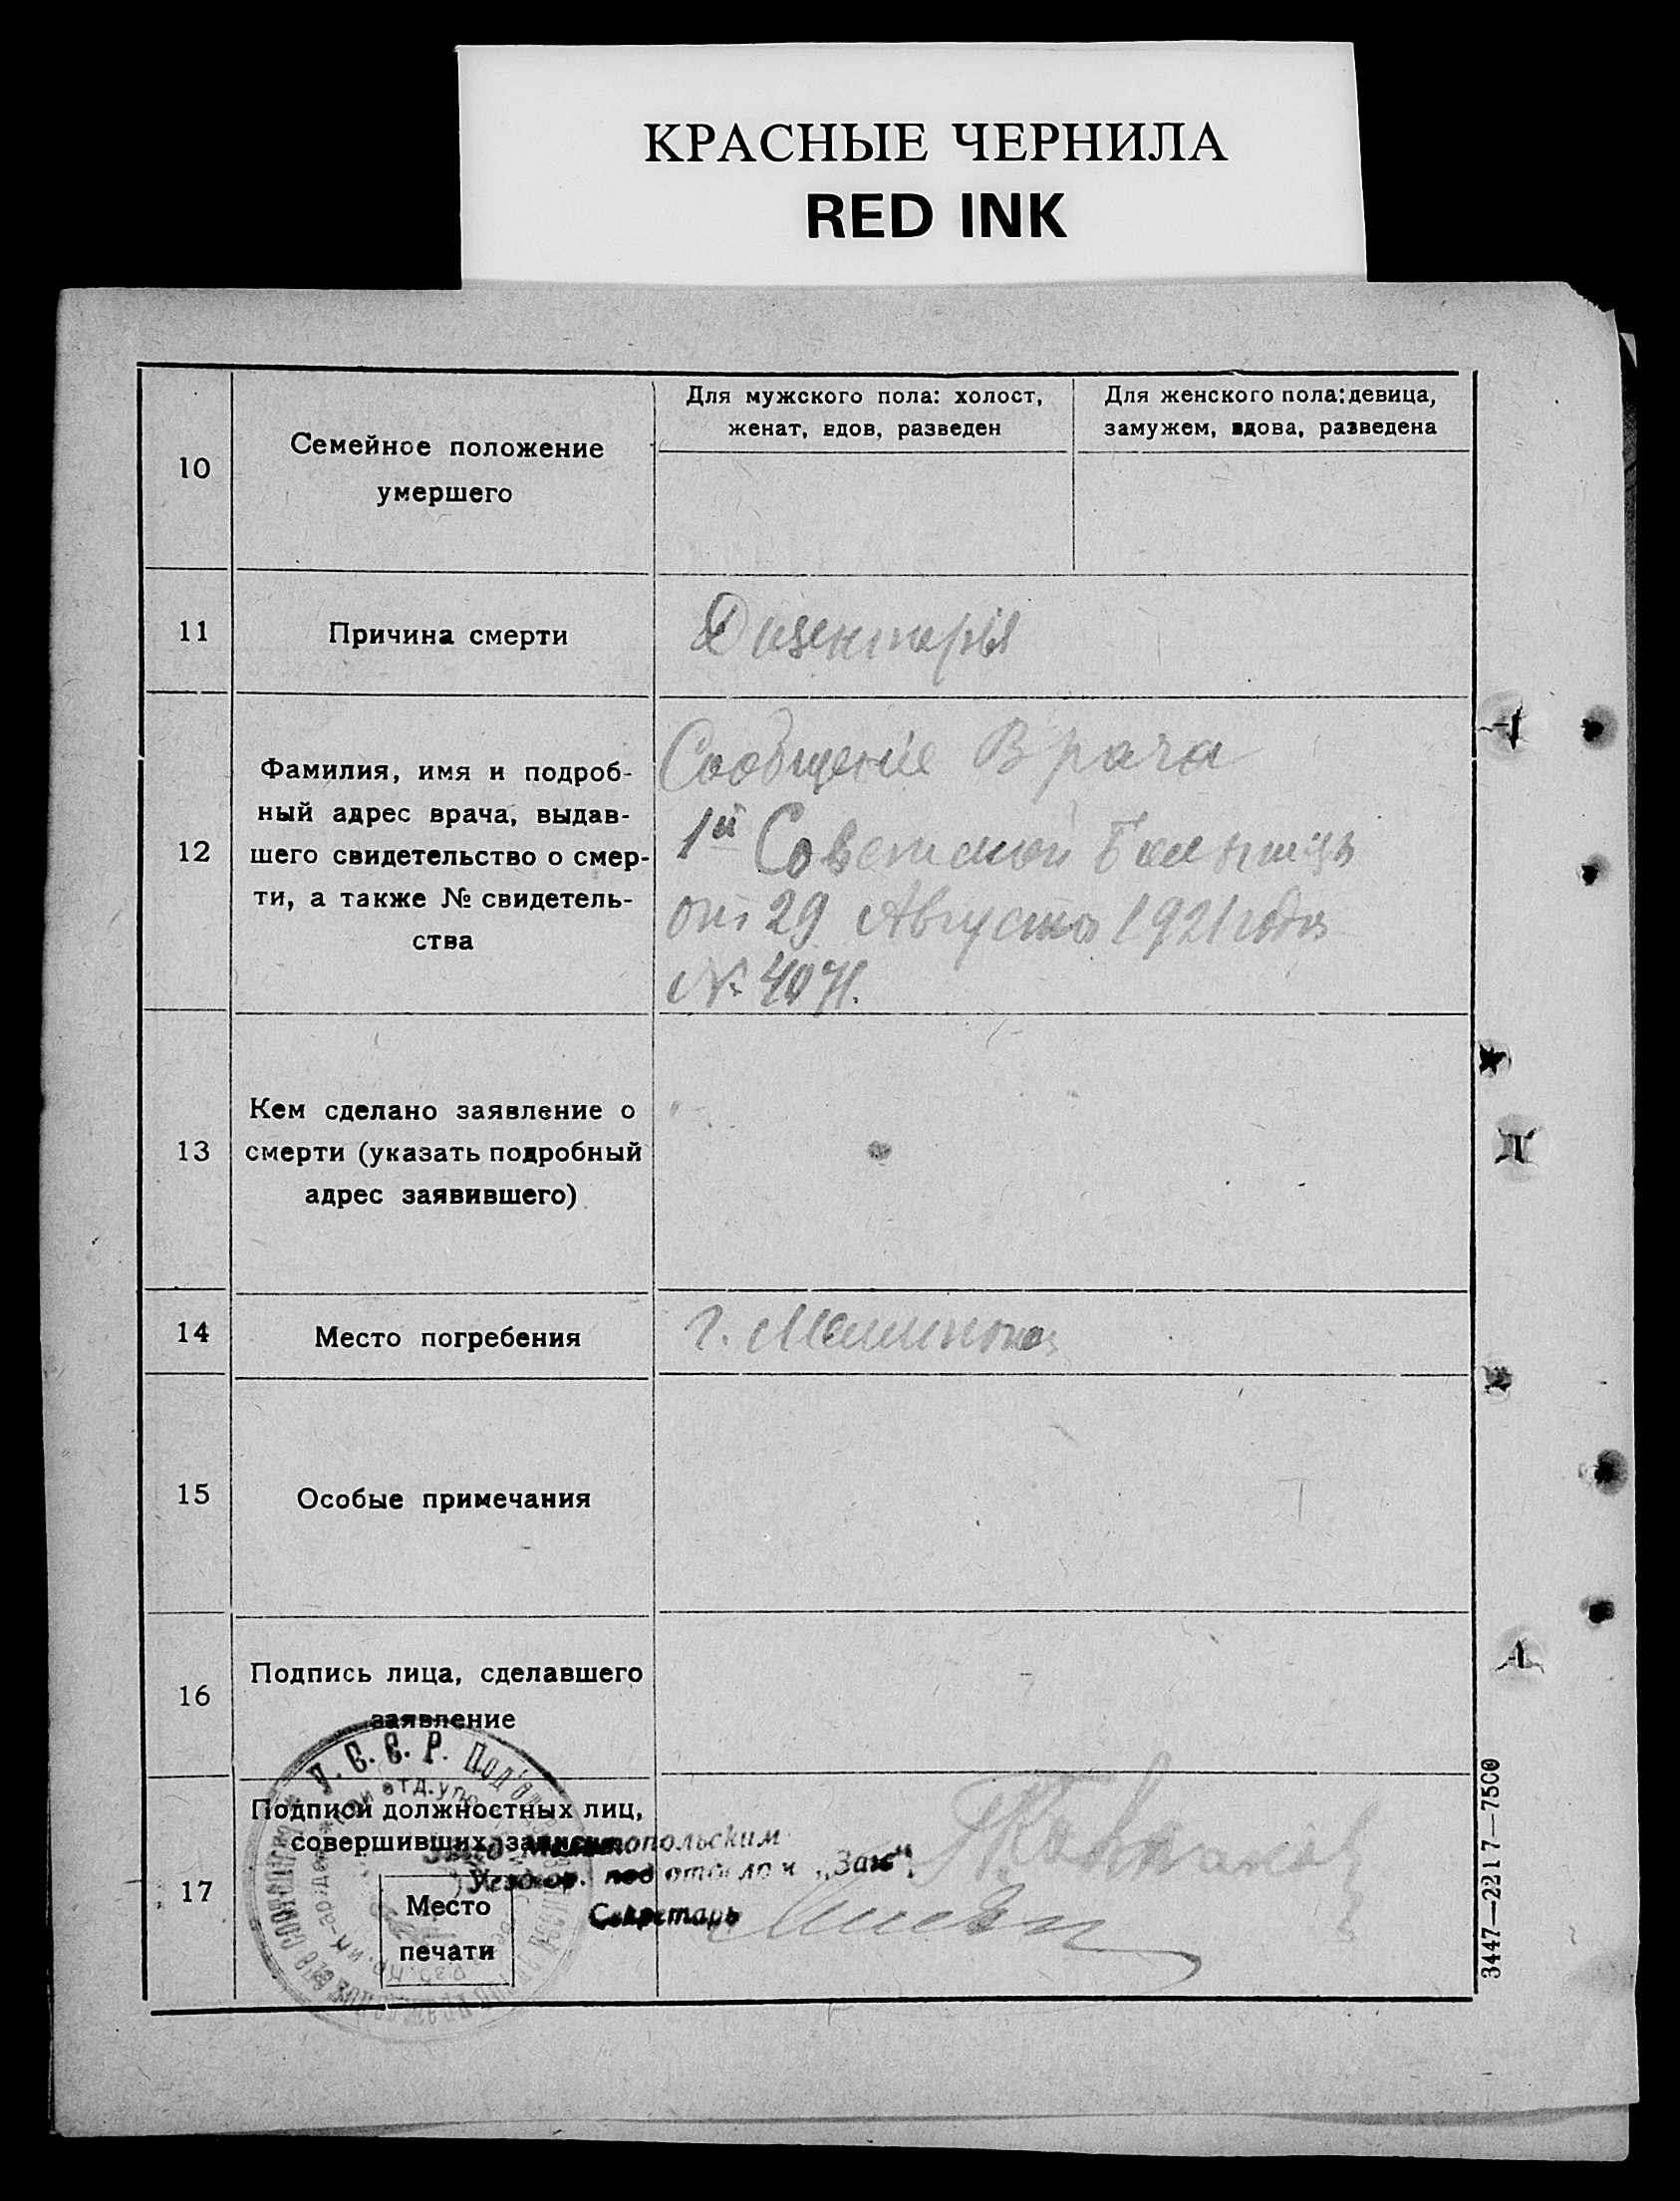 КРАСНЫЕ ЧЕРНИЛА
RED INK
10
Семейное положение
умершего
Для мужского пола: холост,
женат, вдов, разведен
Для женского пола: девица,
замужем, вдова, разведена
11
Причина смерти
Дизентерія
12
Фамилия, имя и подроб-
ный адрес врача, выдав-
шего свидетельство о смер-
ти, а также № свидетель-
ства
Сообщеніе Врача
1й Советской Больницы
от 29 Августа 1921 года
№ 4071.
13
Кем сделано заявление о
смерти (указать подробный
адрес заявившего)
14
Место погребения
г. Мелитополь
15
Особые примечания
16
Подпись лица, сделавшего
заявление
17
Подписи должностных лиц,
совершивших запись
Место
печати
У. С. С. Р. Под'отд.
Зав. Мелитопольским
Уездн. подотделом „Загс"
Секретарь
3447—2217—7500